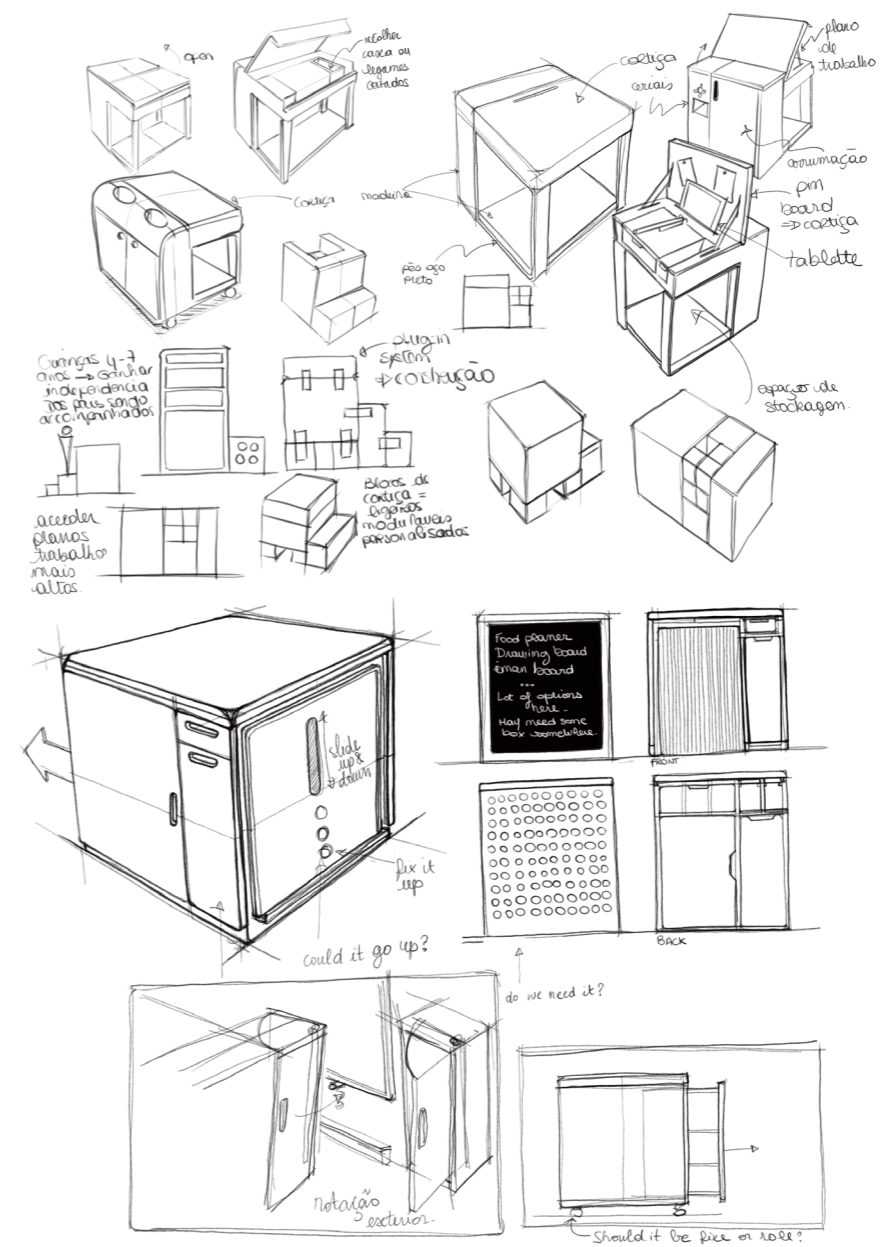 open
recolher
casca ou
legumes
cortados
cortiça
cereais
plano
de
trabalho
arrumação
pin
board
⇒ cortiça
tablette
cortiça
madeira
pés aço
preto
espaço de
stockagem.
Crianças 4-7
anos → Ganhar
independencia
dos pais sendo
accompanhados
plug-in
system
→ construção
Blocos de
cortiça =
ligeiros
moduláveis
personalisados
acceder
planos
trabalho
mais
altos.
slide
up &
down
fix it
up
could it go up?
Food planer
Drawing board
iman board
...
Lot of options
here.
May need some
box somewhere.
FRONT
BACK
do we need it?
rotação
exterior.
Should it be fixe or role?